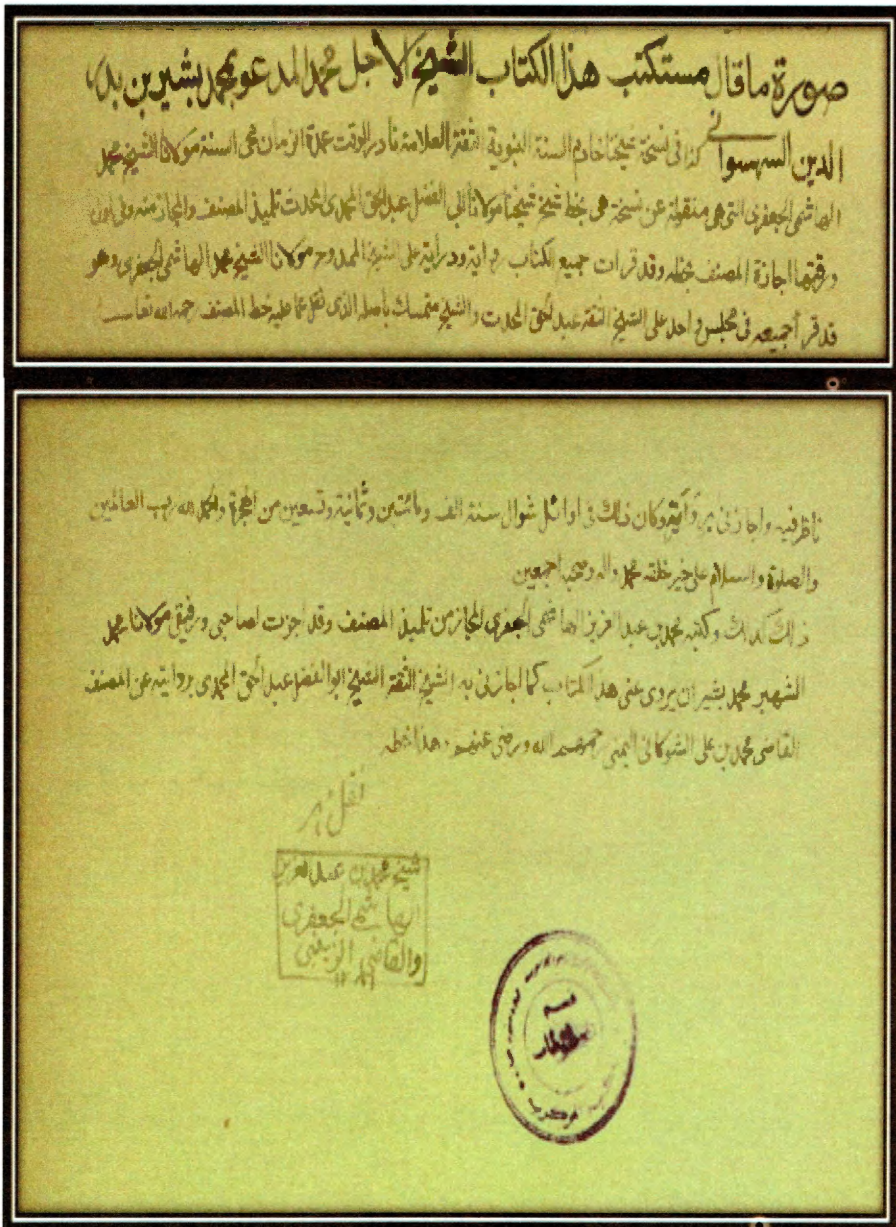 صورة ما قال مستكتب هذا الكتاب الشيخ الاجل محمد المدعو بمحمد بشير بن بدر
الدين السهسواني كذا في نسخة شيخنا خادم السنة النبوية الثقة العلامة نادر الوقت عمدة الزمان محي السنة مولانا الشيخ محمد
الهاشمي الجعفري التي هي منقولة عن نسخة هي بخط شيخ شيخنا مولانا ابي الفضل عبد الحق المحمدي المحدث تلميذ المصنف والمجاز منه وفي اول
ورقتها اجازة المصنف بخطه وقد قرات جميع الكتاب رواية ودراية على الشيخ الممدوح مولانا الشيخ محمد الهاشمي الجعفري وهو
قد قرأ جميعه في مجلس واحد على الشيخ الثقة عبد الحق المحدث والشيخ متمسك بأصله الذي نقل مما عليه خط المصنف رحمه الله تعالى
ناظر فيه واجازني بروايته وكان ذلك في اوائل شوال سنة الف ومائتين وثمانية وتسعين من الهجرة والحمد لله رب العالمين
والصلوة والسلام على خير خلقه محمد واله وصحبه اجمعين
ذلك كذلك وكتبه محمد بن عبد العزيز الهاشمي الجعفري المجاز من تلميذ المصنف وقد اجزت لصاحبي ورفيقي مولانا محمد
الشهير محمد بشير ان يروي عني هذا الكتاب كما اجازني به الشيخ الثقة الشيخ ابو الفضل عبد الحق المحمدي بروايته عن المصنف
القاضي محمد بن علي الشوكاني اليمني رحمهم الله ورضي عنهم هذا خطه
نقل مهر
شيخ محمد بن عبد العزيز
الهاشمي الجعفري
والقاضي الزينبي